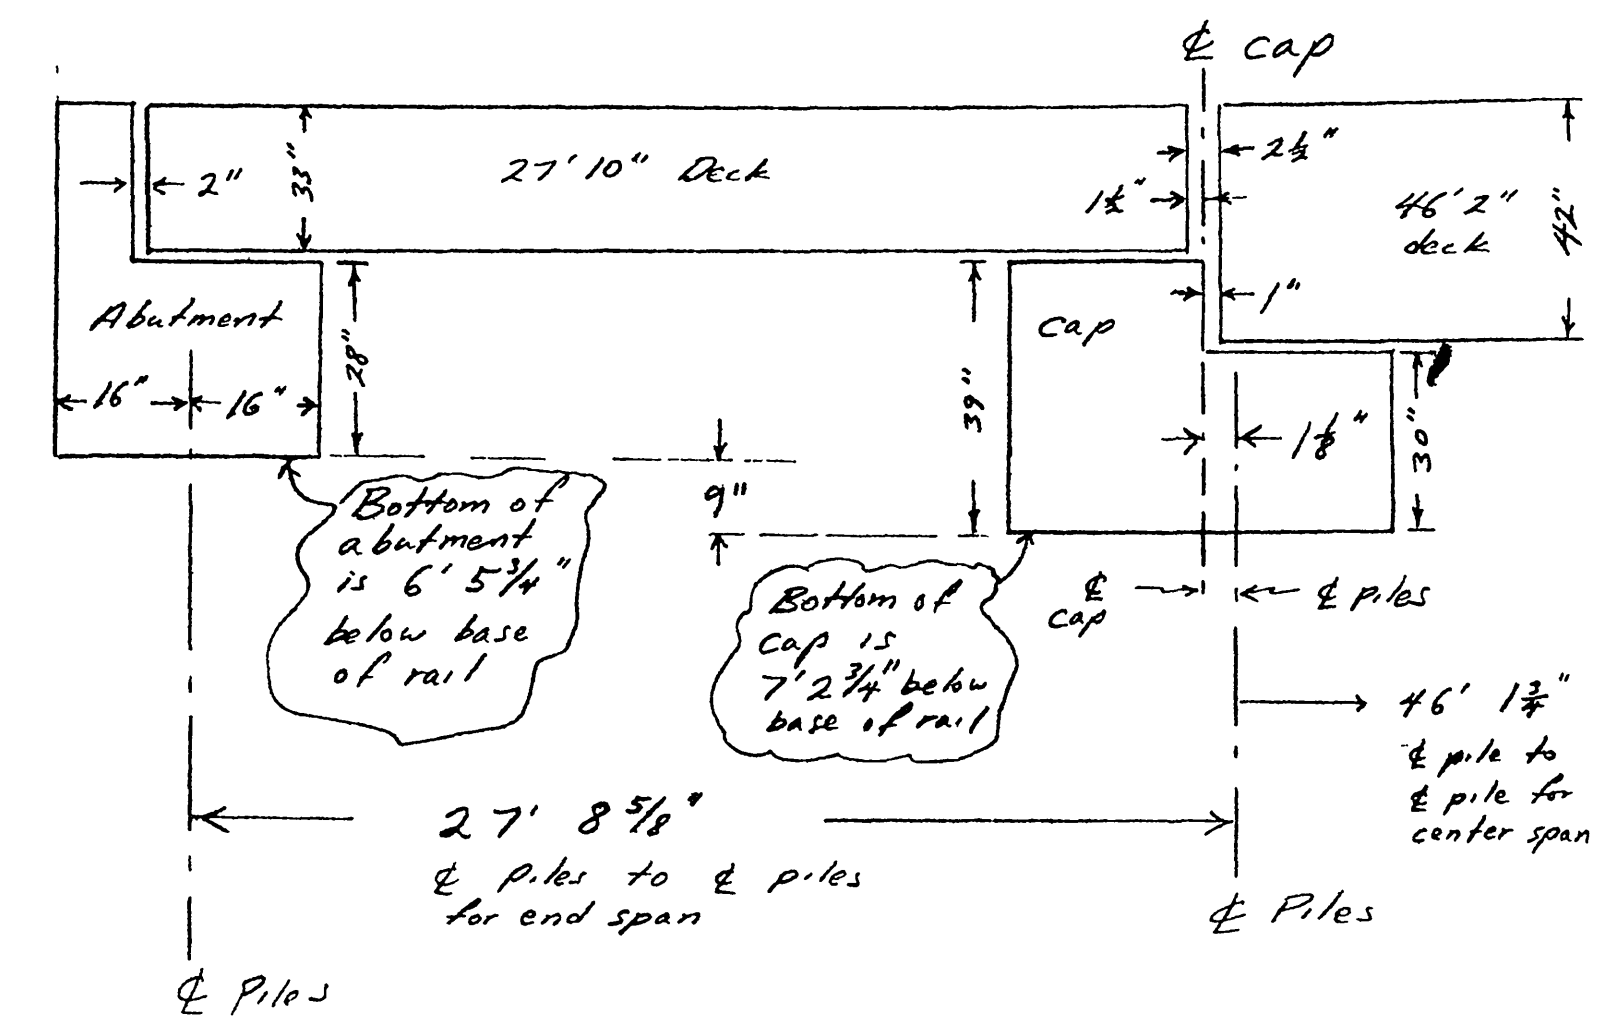 ℄ cap
33"
27' 10" Deck
2"
2 1/2"
1 1/2"
46' 2"
deck
42"
1"
Abutment
28"
16"
16"
39"
cap
1 1/8"
30"
9"
Bottom of
abutment
is 6' 5 3/4"
below base
of rail
Bottom of
cap is
7' 2 3/4" below
base of rail
℄
cap
℄ piles
46' 1 3/4"
℄ pile to
℄ pile for
center span
27' 8 5/8"
℄ piles to ℄ piles
for end span
℄ Piles
℄ Piles